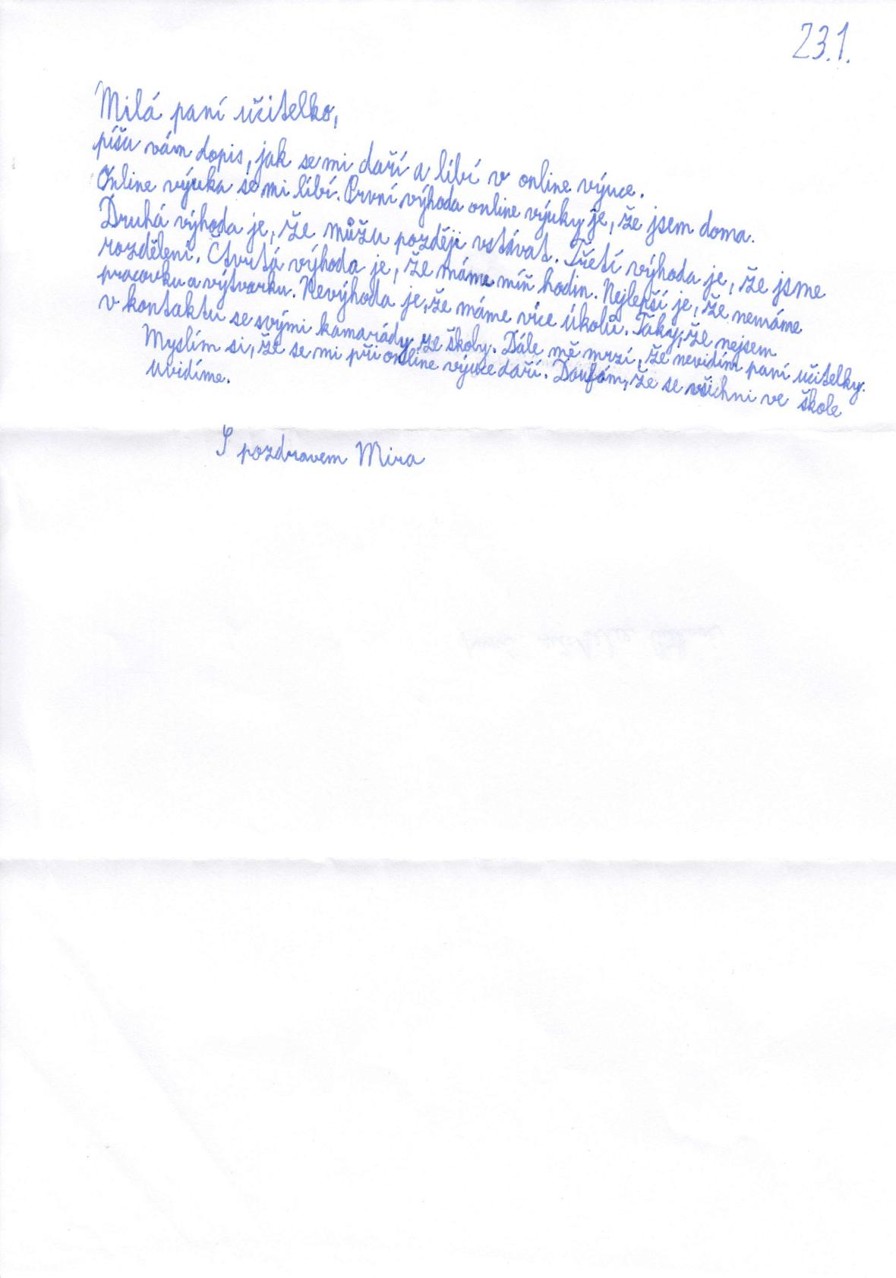 23.1.
Milá paní učitelko,
píšu vám dopis, jak se mi daří a líbí v online výuce.
Online výuka se mi líbí. První výhoda online výuky je, že jsem doma.
Druhá výhoda je, že můžu později vstávat. Třetí výhoda je, že jsme
rozdělení. Čtvrtá výhoda je, že máme míň hodin. Nejlepší je, že nemáme
pracovku a výtvarku. Nevýhoda je, že máme více úkolů. Taky, že nejsem
v kontaktu se svými kamarády ze školy. Dále mě mrzí, že nevidím paní učitelky.
Myslím si, že se mi při online výuce daří. Doufám, že se všichni ve škole
uvidíme.
S pozdravem Mira